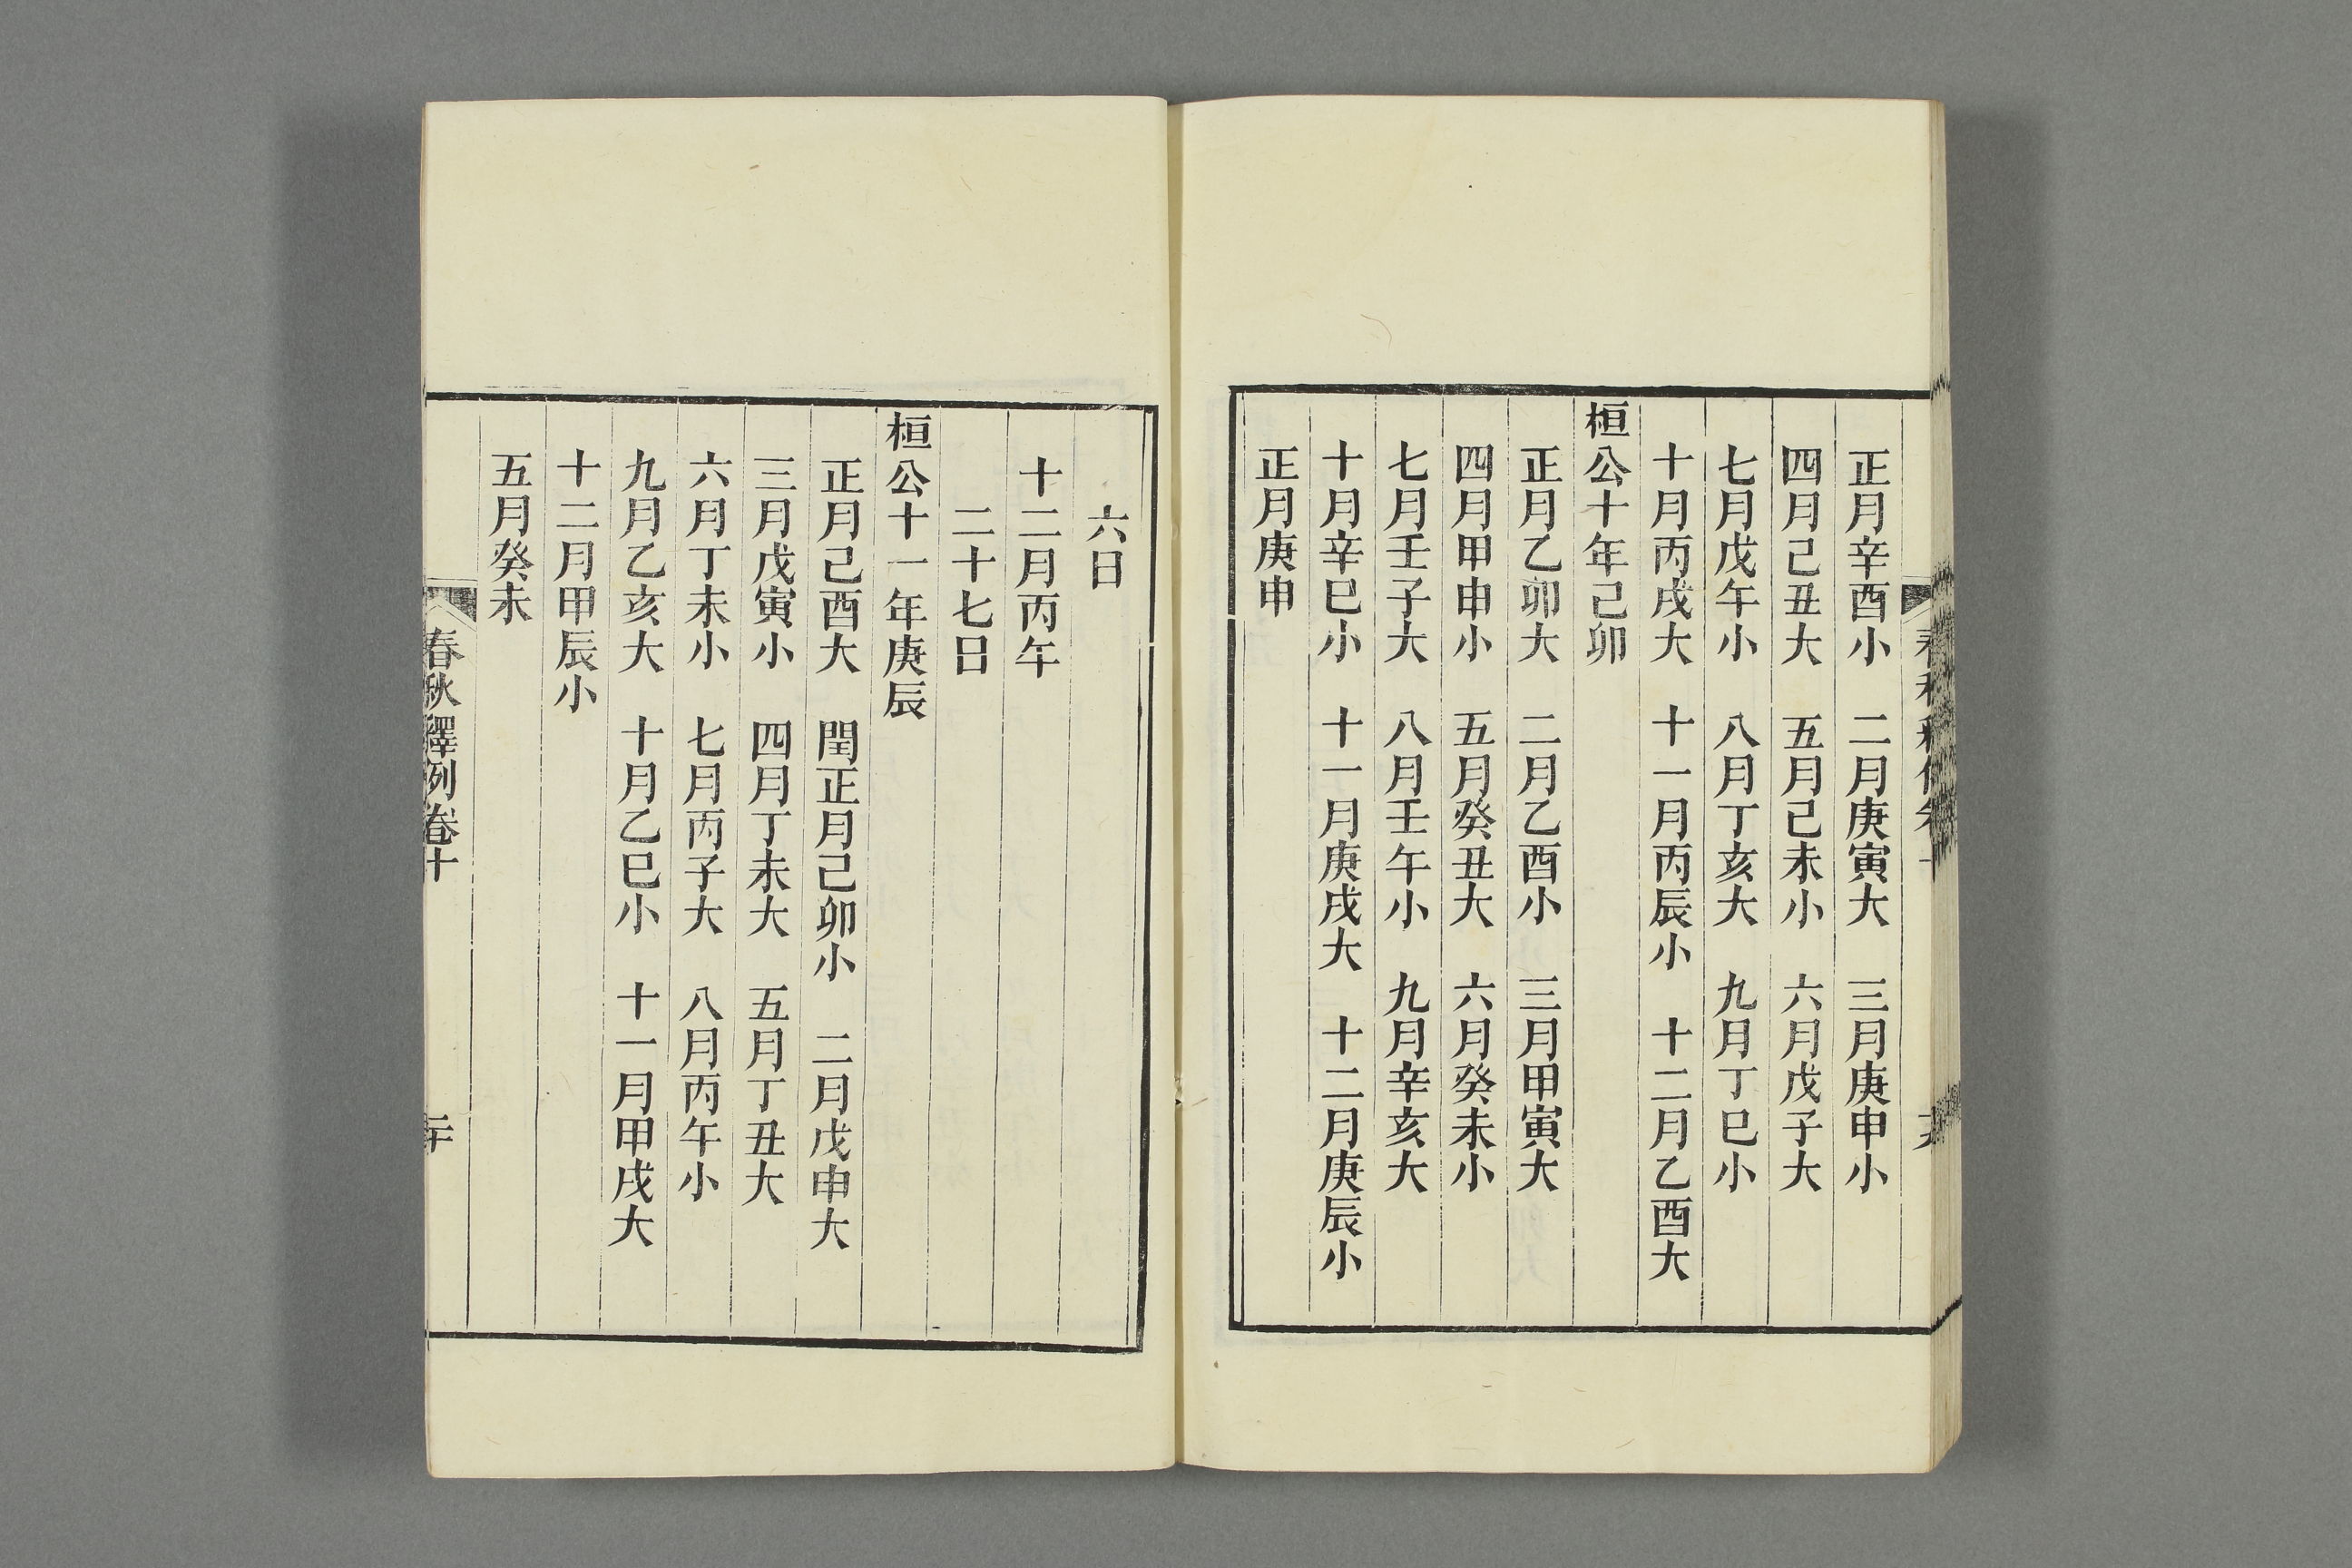 正月辛酉小　二月庚寅大　三月庚申小
四月己丑大　五月己未小　六月戊子大
七月戊午小　八月丁亥大　九月丁巳小
十月丙戌大　十一月丙辰小　十二月乙酉大
桓公十年己卯
正月乙卯大　二月乙酉小　三月甲寅大
四月甲申小　五月癸丑大　六月癸未小
七月壬子大　八月壬午小　九月辛亥大
十月辛巳小　十一月庚戌大　十二月庚辰小
正月庚申
六日
十二月丙午
二十七日
桓公十一年庚辰
正月己酉大　閏正月己卯小　二月戊申大
三月戊寅小　四月丁未大　五月丁丑大
六月丁未小　七月丙子大　八月丙午小
九月乙亥大　十月乙巳小　十一月甲戌大
十二月甲辰小
五月癸未
春秋釋例卷十
二十